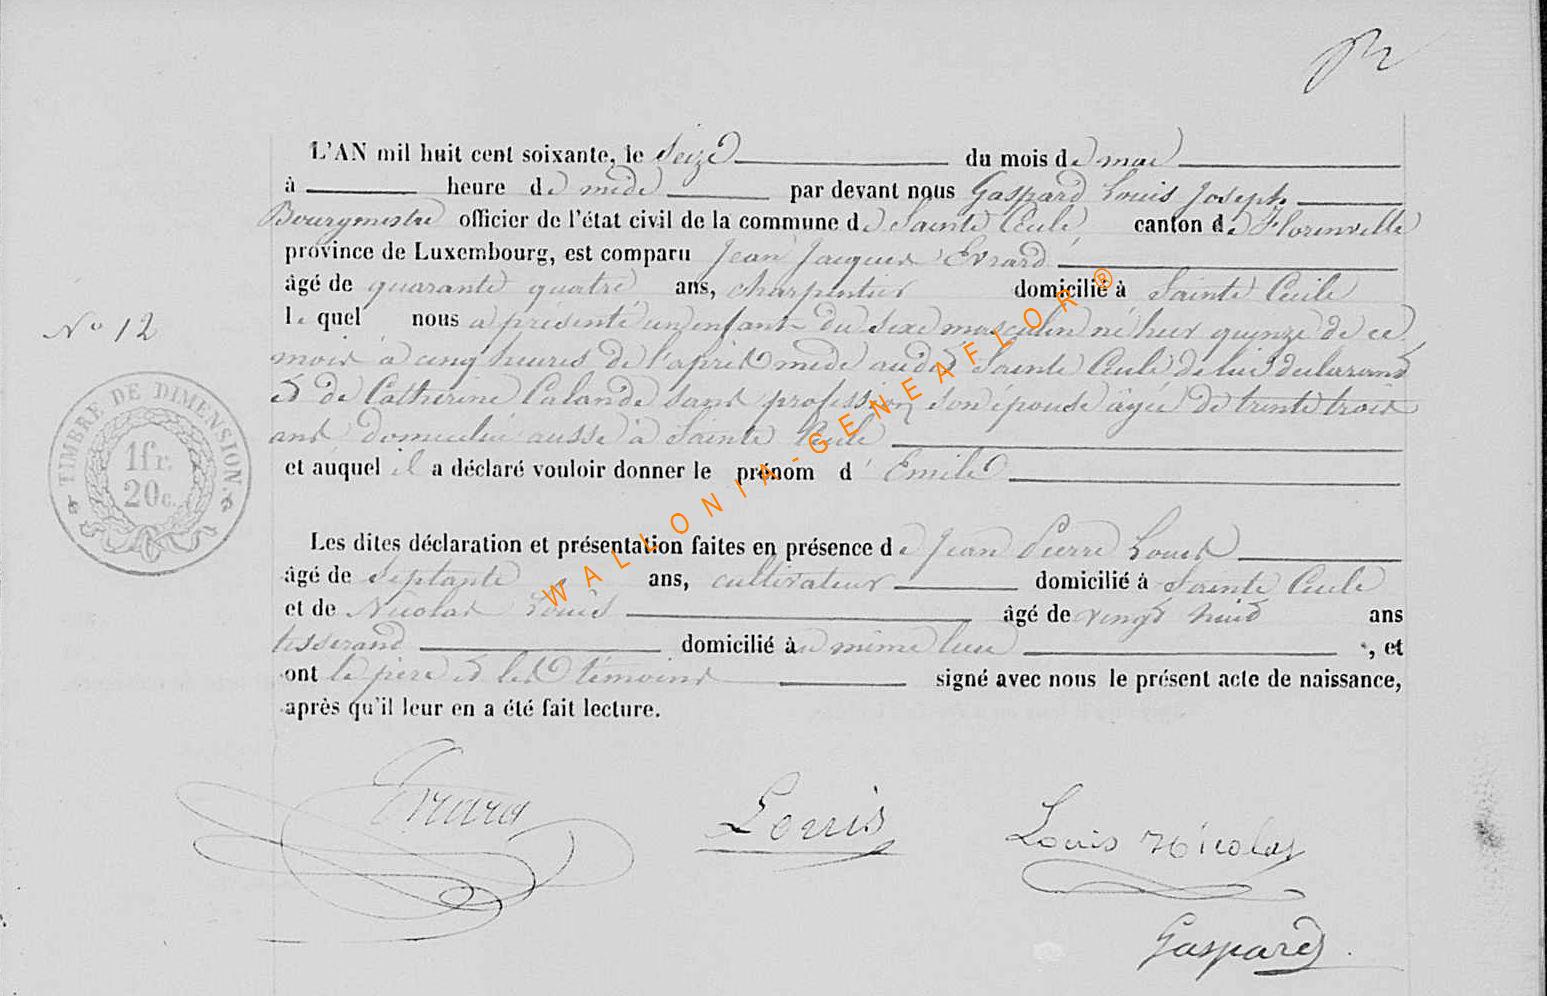 L'AN mil huit cent soixante, le Seize du mois de mai
à heure de midi par devant nous Gaspard Louis Joseph
Bourgmestre officier de l'état civil de la commune de Sainte Cecile canton de Florenville
province de Luxembourg, est comparu Jean Jacques Evrard
âgé de quarante quatre ans, charpentier domicilié à Sainte Cecile
le quel nous a présenté un enfant du sexe masculin né hier quinze de ce
N° 12
mois à cinq heures de l'après midi audit Sainte Cecile de lui declarant
et de Catherine Lalande sans profession son épouse âgée de trente trois
ans domiciliée aussi à Sainte Cecile
et auquel il a déclaré vouloir donner le prénom d'Emile
TIMBRE DE DIMENSION
1fr.
20c.
Les dites déclaration et présentation faites en présence de Jean Pierre Louis
âgé de Septante ans, cultivateur domicilié à Sainte Cecile
et de Nicolas Louis âgé de vingt huit ans
tisserand domicilié à même lieu, et
ont le père et les témoins signé avec nous le présent acte de naissance,
après qu'il leur en a été fait lecture.
Evrard Louis Louis Nicolas
Gaspard
WALLONIA-GENEAFLOR®